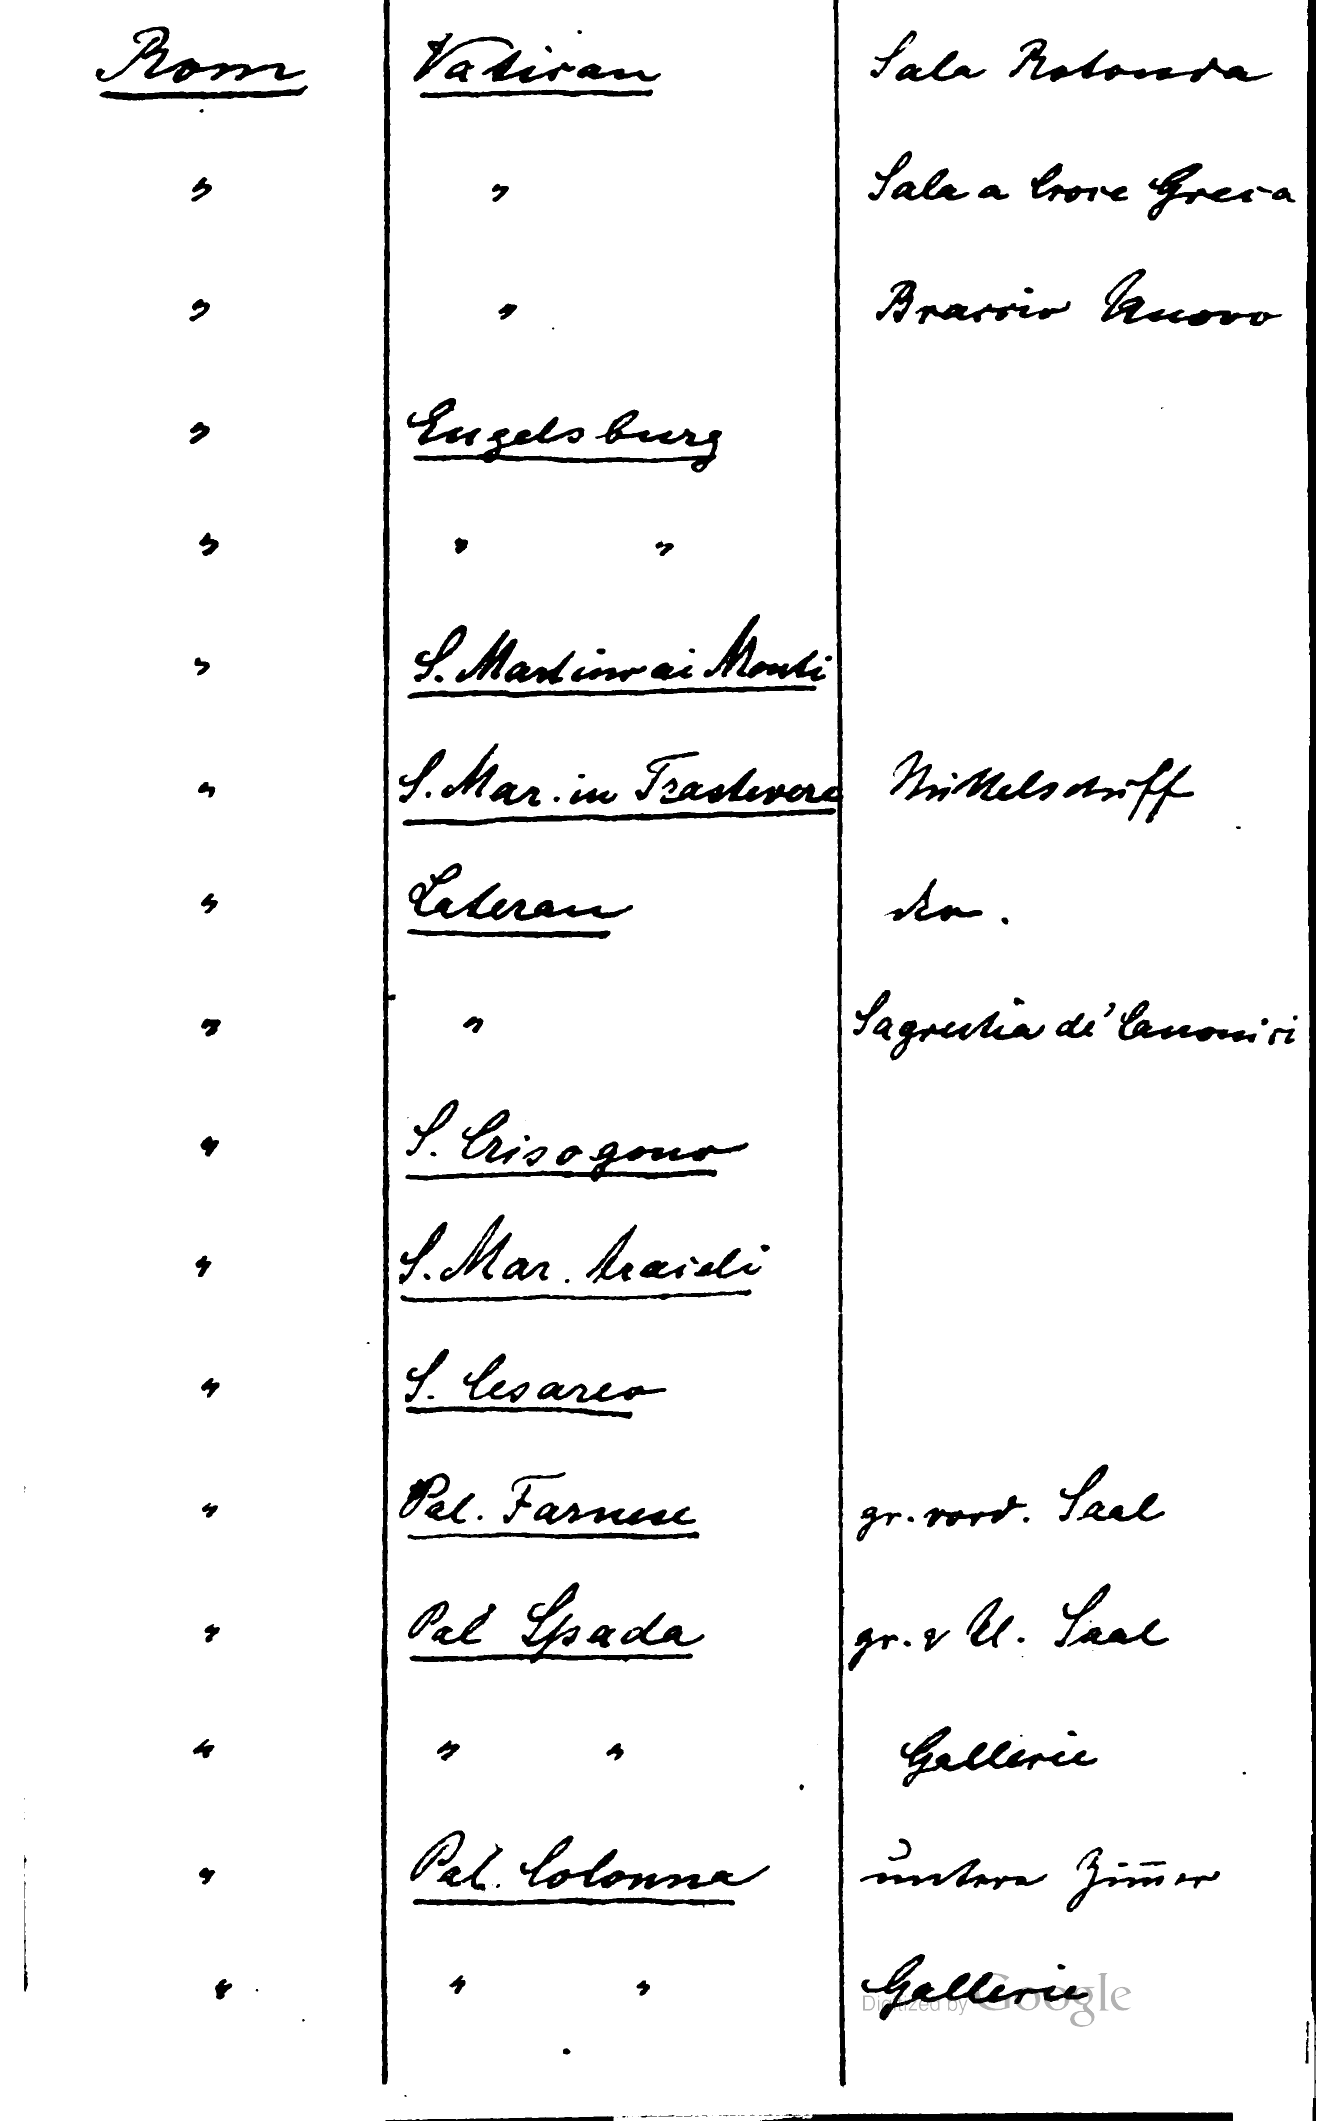 Rom Vatican Sala Rotonda
" " Sala a Croce Greca
" " Braccio Nuovo
" Engelsburg
" " "
" S. Martino ai Monti
" S. Mar. in Trastevere Mittelschiff
" Lateran do.
" " Sagrestia de' Canonici
" S. Crisogono
" S. Mar. Araceli
" S. Cesareo
" Pal. Farnese gr. vord. Saal
" Pal. Spada gr. & kl. Saal
" " " Gallerie
" Pal. Colonna untere Zim̄er
" " " Gallerie
Digitized by Google